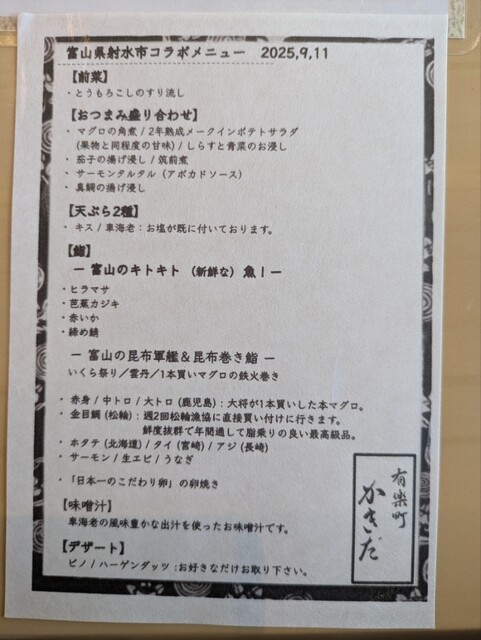 富山県射水市コラボメニュー　2025,9,11
【前菜】
・とうもろこしのすり流し
【おつまみ盛り合わせ】
・マグロの角煮 / 2年熟成メークインポテトサラダ
(果物と同程度の甘味) / しらすと青菜のお浸し
・茄子の揚げ浸し / 筑前煮
・サーモンタルタル（アボカドソース）
・真鯛の揚げ浸し
【天ぷら2種】
・キス / 車海老：お塩が既に付いております。
【鮨】
ー 富山のキトキト （新鮮な） 魚！ー
・ヒラマサ
・芭蕉カジキ
・赤いか
・締め鯖
ー 富山の昆布軍艦＆昆布巻き鮨 ー
いくら祭り／雲丹／1本買いマグロの鉄火巻き
・赤身 / 中トロ / 大トロ (鹿児島)：大将が1本買いした本マグロ。
・金目鯛 (松輪)：週2回松輪漁協に直接買い付けに行きます。
鮮度抜群で年間通して脂乗りの良い最高級品。
・ホタテ (北海道) / タイ (宮崎) / アジ (長崎)
・サーモン / 生エビ / うなぎ
・「日本一のこだわり卵」の卵焼き
【味噌汁】
車海老の風味豊かな出汁を使ったお味噌汁です。
【デザート】
ピノ / ハーゲンダッツ :お好きなだけお取り下さい。
有楽町
かきだ